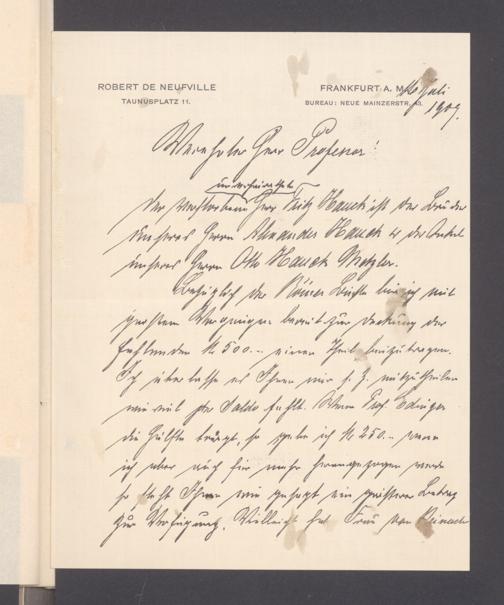 ROBERT DE NEUFVILLE
TAUNUSPLATZ 11.
FRANKFURT A. M.
BUREAU: NEUE MAINZERSTR.
Juli
1909.
Werther Herr Professor!
unverheirathete
Der verstorbene Herr Fritz Hauck ist der Bruder
unseres Herrn Alexander Hauck & der Onkel
unseres Herrn Otto Hauck Metzler.
Bezüglich der Römer Büste bin ich mit
grossem Vergnügen bereit zur Deckung der
fehlenden M 500.- einen Theil beizutragen.
Ich überlasse es Ihnen mir s. Z. mitzutheilen
wie viel per Saldo fehlt. Wenn Prof. Edinger
die Hälfte trägt, so gebe ich M 250.- wenn
ich aber auch für mehr herangezogen werde
so steht Ihnen wie gesagt ein grösserer Betrag
zur Verfügung. Vielleicht hat Frau von Reinach